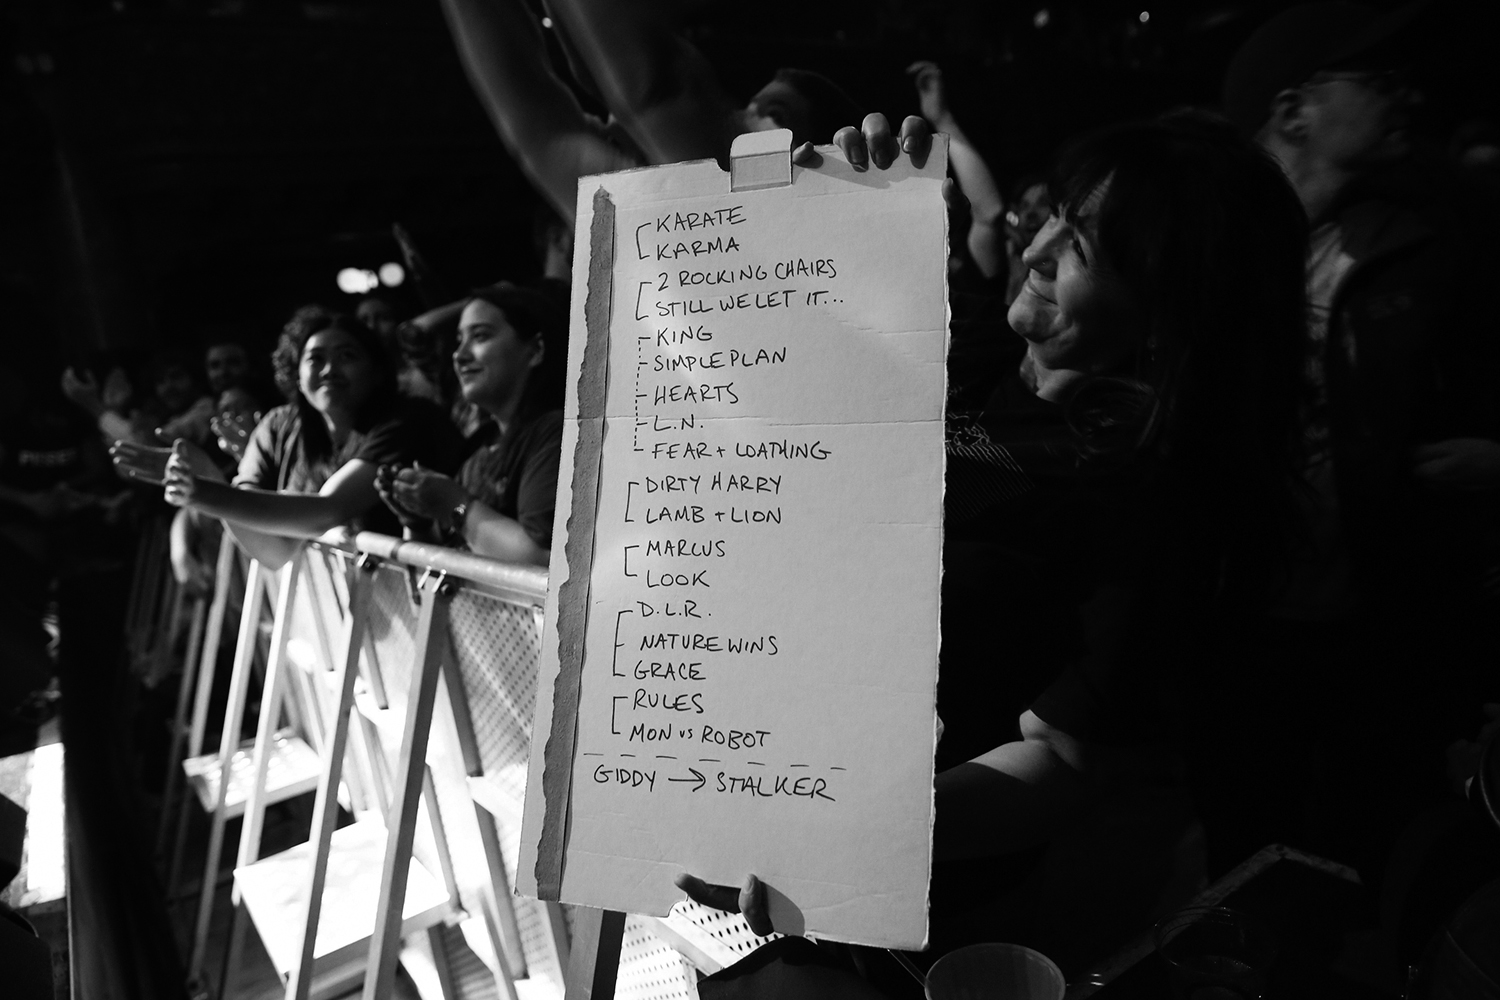 KARATE
KARMA
2 ROCKING CHAIRS
STILL WE LET IT...
KING
SIMPLE PLAN
HEARTS
L.N.
FEAR + LOATHING
DIRTY HARRY
LAMB + LION
MARCUS
LOOK
D.L.R.
NATURE WINS
GRACE
RULES
MON vs ROBOT
GIDDY → STALKER